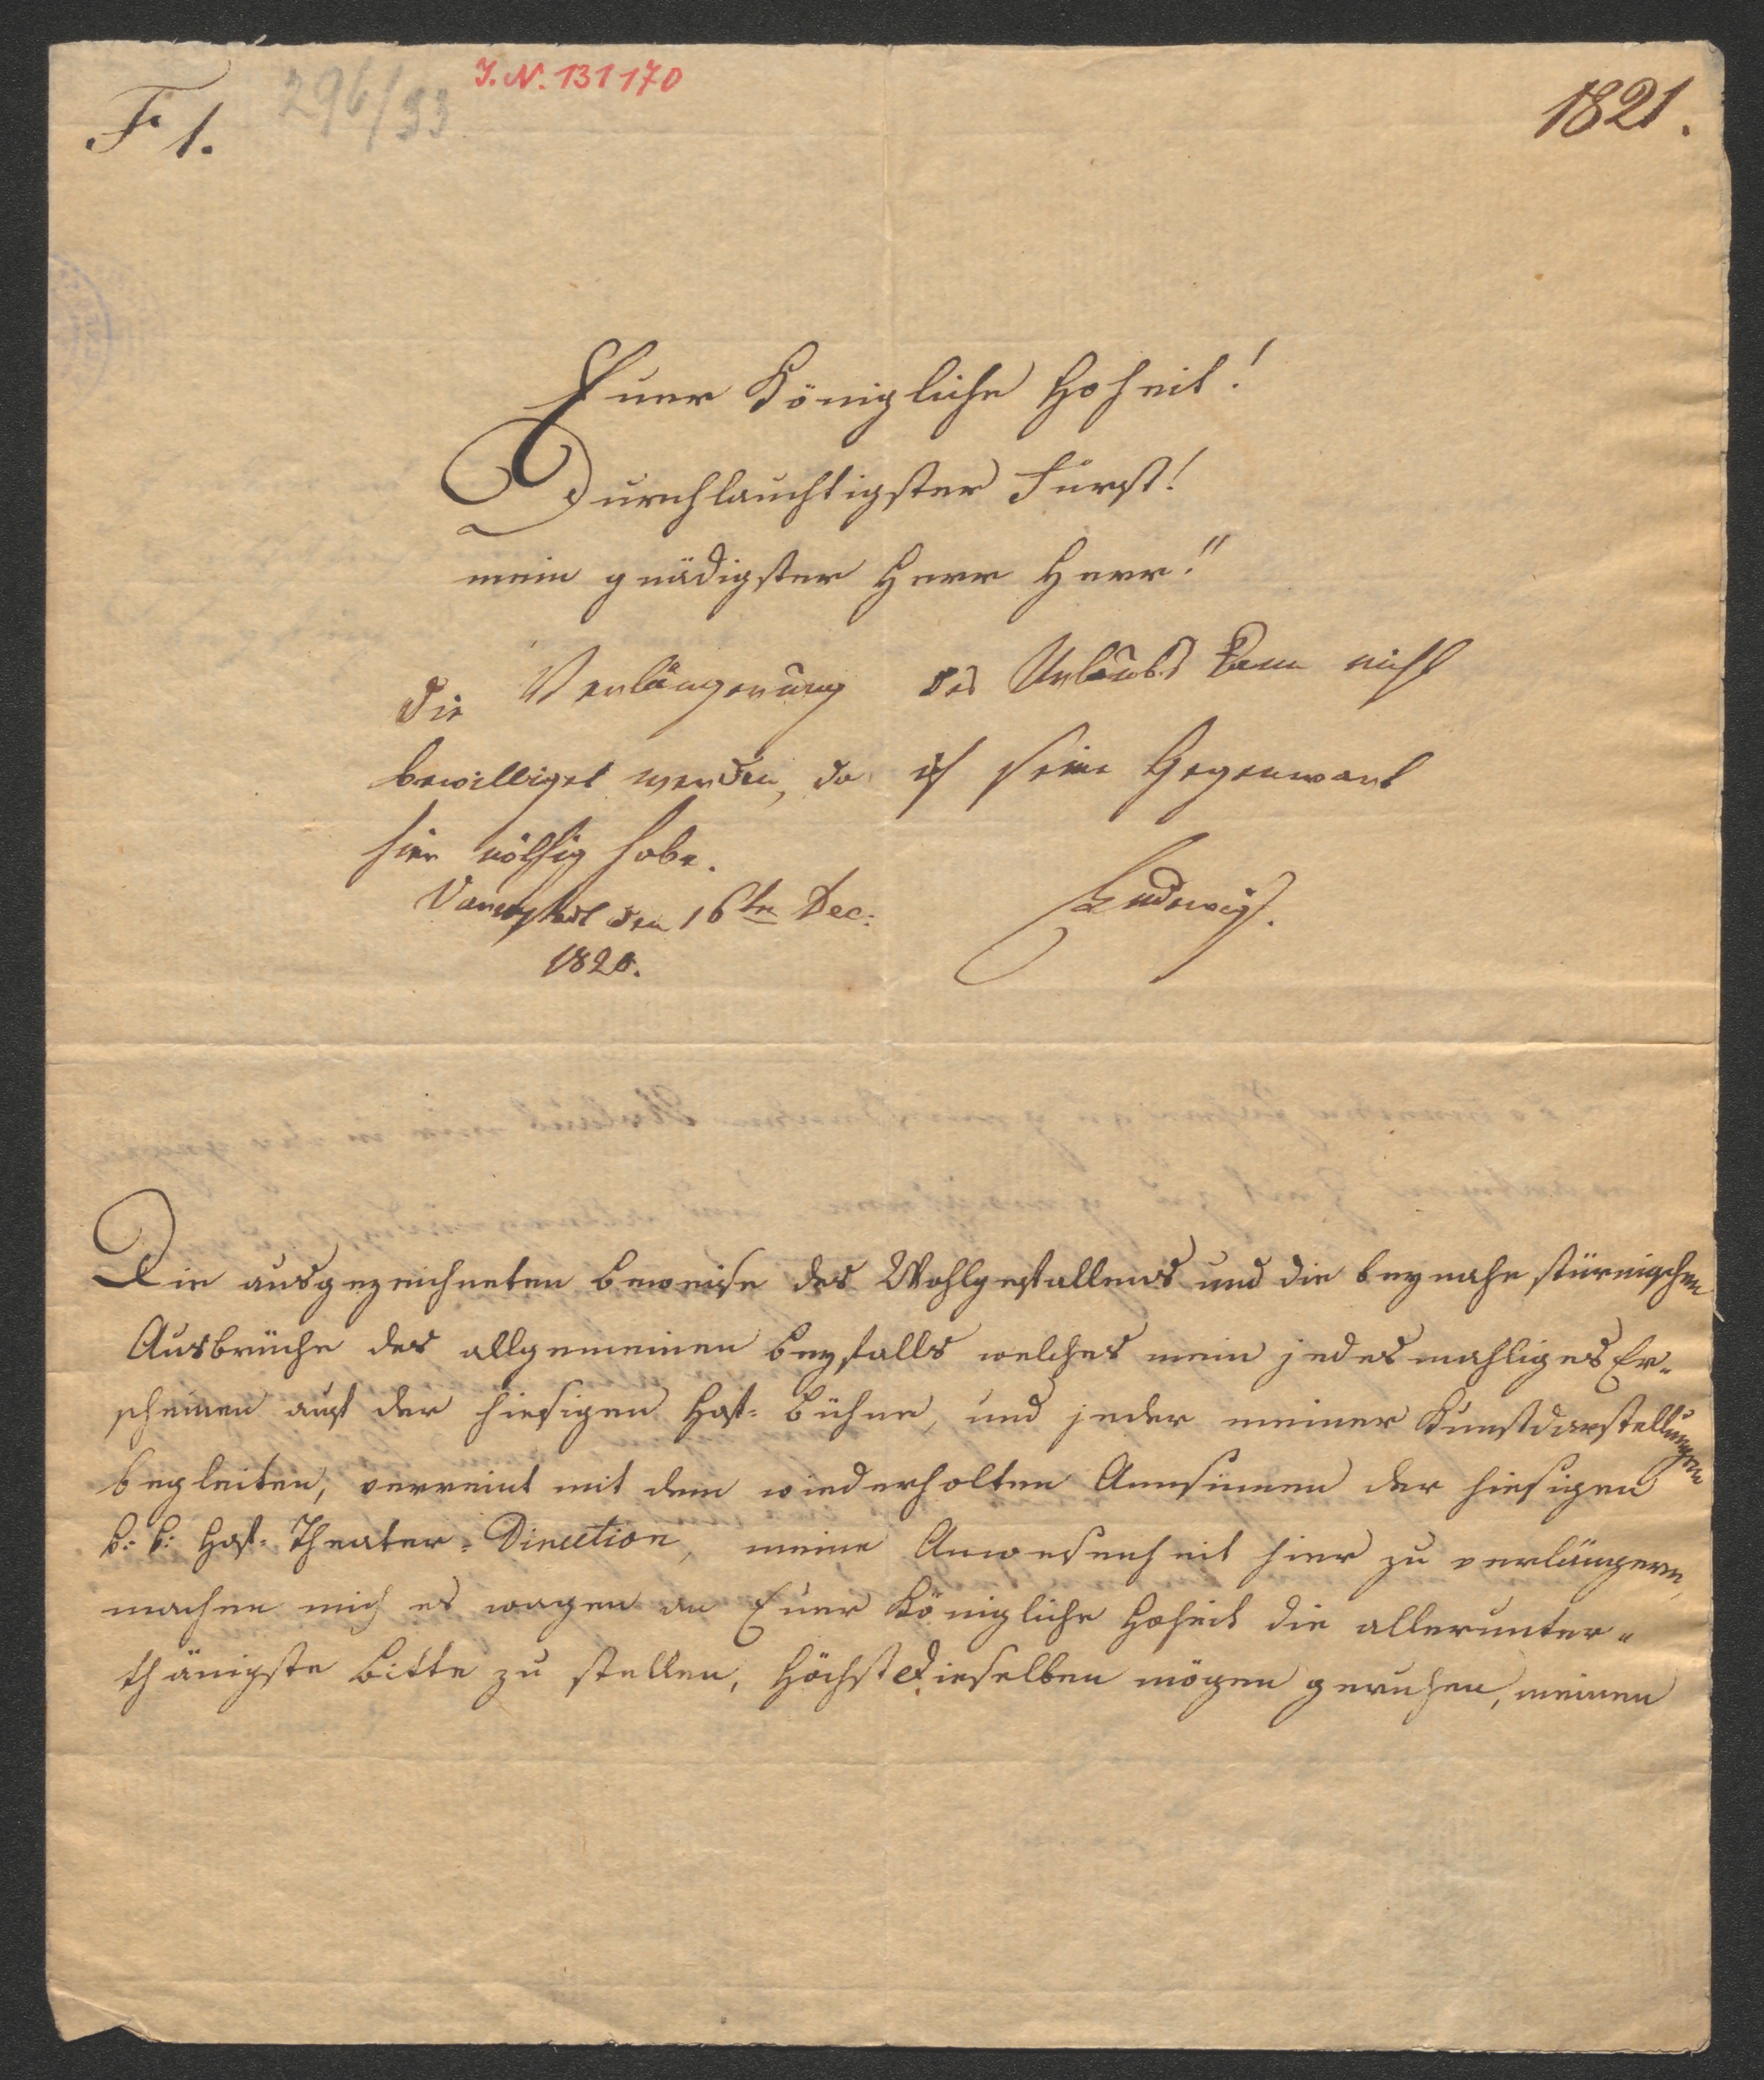 F 1.
296/93
I. N. 131170
1821.
Euer Königliche Hoheit!
Durchlauchtigster Fürst!
mein gnädigster Herr Herr!
die Verlängerung des Urlaubs kann nicht
bewilliget werden, da ich seine Gegenwart
hier nöthig habe.
Darmstadt den 16ten Dec:
1820.
Ludewig.
Die ausgezeichneten Beweise des Wohlgefallens und die beynahe stürmischen
Ausbrüche des allgemeinen Beyfalls welches mein jedesmahliges Er-
scheinen auf der hiesigen Hof-Bühne, und jeder meiner Kunstdarstellungen
begleiten, verreint mit dem wiederholten Annsinnen der hiesigen
k: k: Hof-Theater-Direction, meine Anwesenheit hier zu verlängern,
machen mich es wagen an Euer Königliche Hoheit die allerunter-
thänigste Bitte zu stellen, Höchstdieselben mögen geruhen, meinen